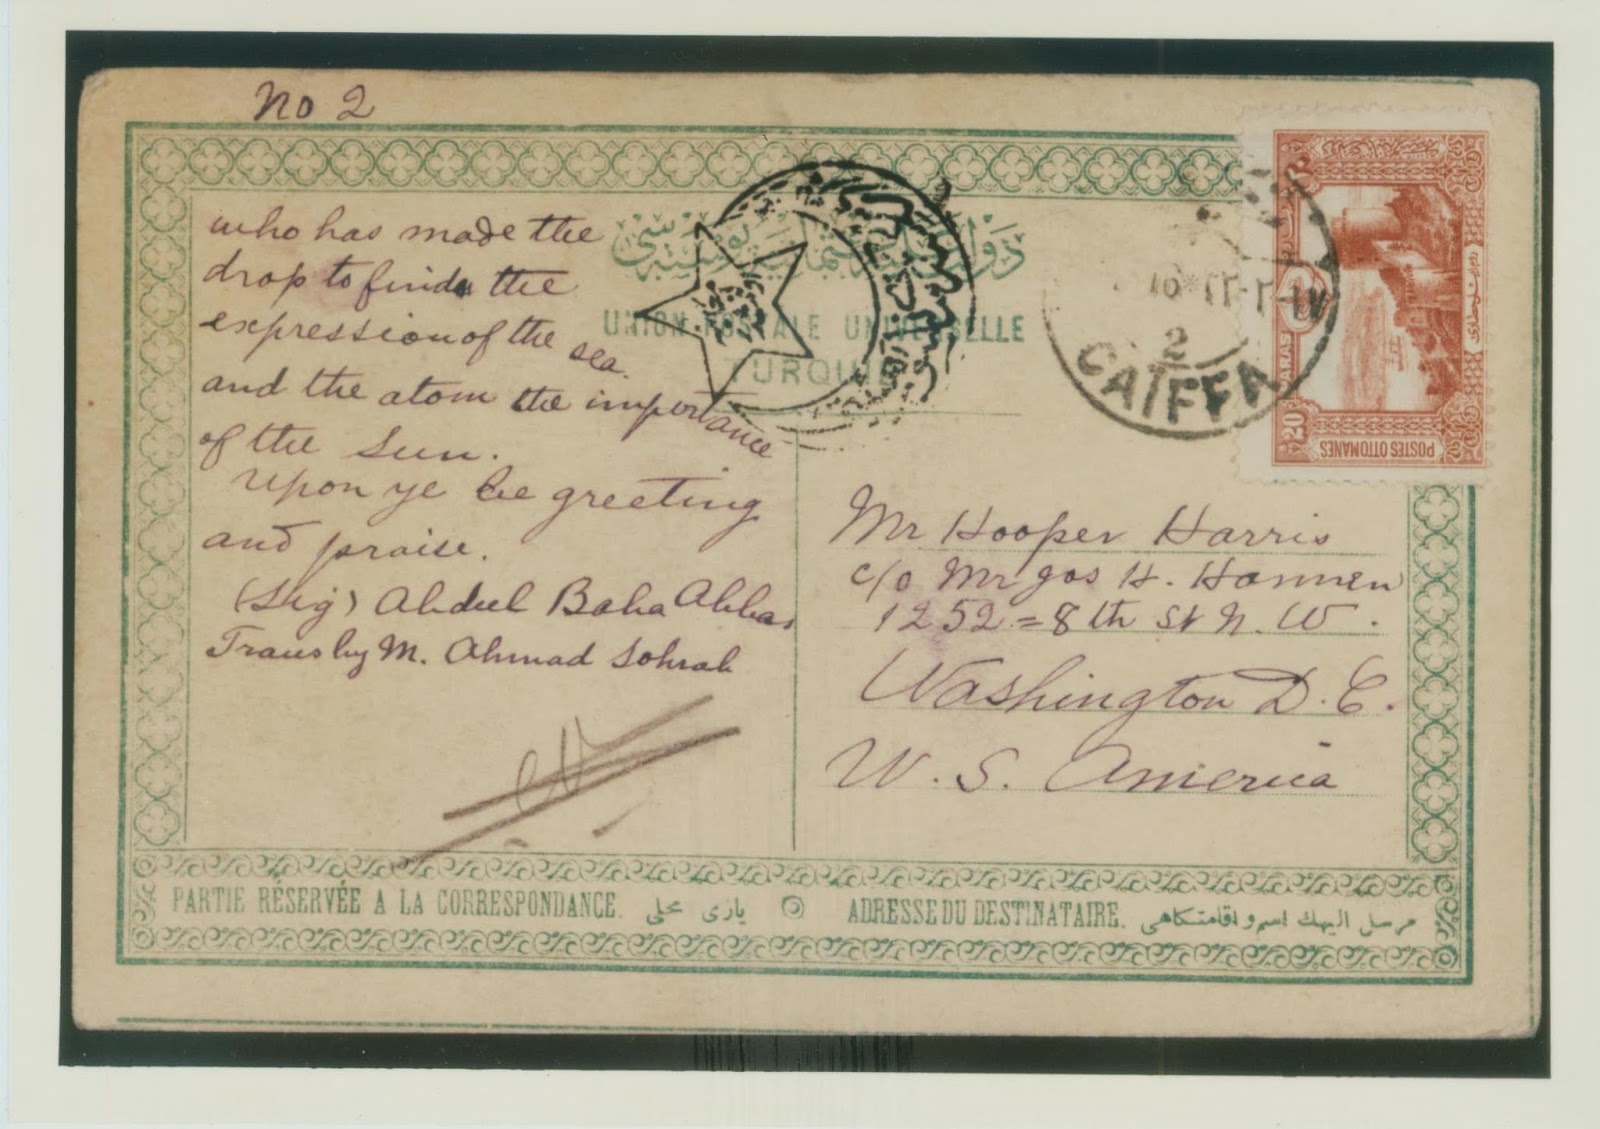 No 2
who has made the
drop to find the
expression of the sea.
and the atom the importance
of the Sun.
Upon ye be greeting
and praise.
(Sig) Abdul Baha Abbas
Trans by M. Ahmad Sohrab
UNION POSTALE UNIVERSELLE
TURQUIE
CAIFFA
2
20 PARAS
POSTES OTTOMANES
Mr Hooper Harris
c/o Mr Jos H. Hannen
1252 = 8th St N. W.
Washington D. C.
U. S. America
PARTIE RÉSERVÉE A LA CORRESPONDANCE. يازى محلى
ADRESSE DU DESTINATAIRE. مرسل اليهك اسم و اقامتكاهى